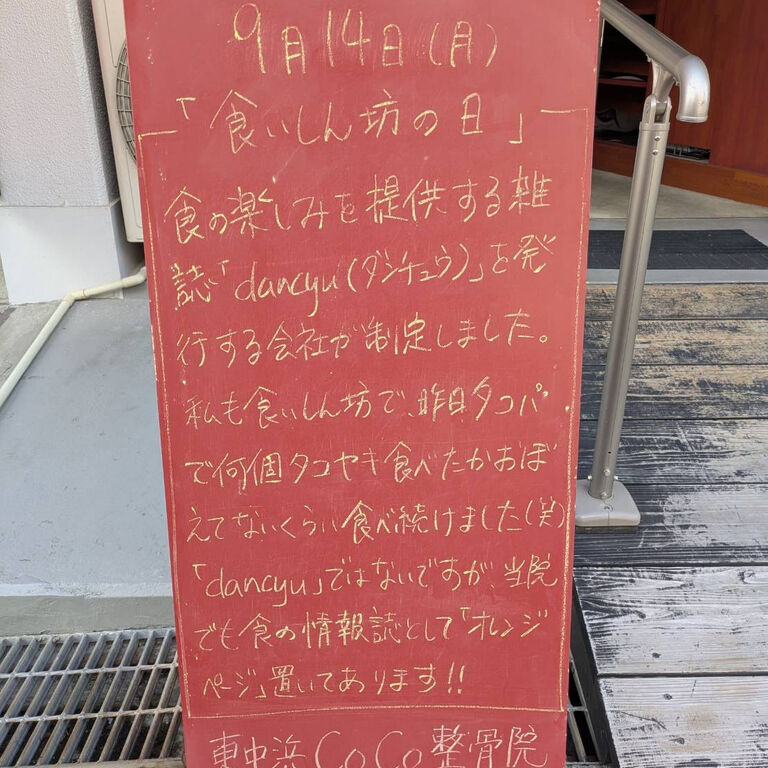 9月14日(月)
「食いしん坊の日」
食の楽しみを提供する雑
誌「dancyu(ダンチュウ)」を発
行する会社が制定しました。
私も食いしん坊で、昨日タコパ
で何個タコヤキ食べたかおぼ
えてないくらい食べ続けました(笑)
「dancyu」ではないですが、当院
でも食の情報誌として「オレンジ
ページ」置いてあります!!
東中浜CoCo整骨院